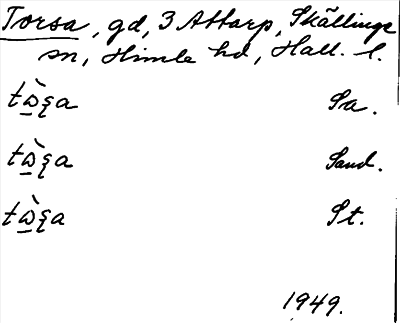 Torsa, gd, 3 Attarp, Skällinge
sn, Himle hd, Hall. l.
tɷ̠̀ʂa Sa.
tɷ̠̀ʂa Sand.
tɷ̠̀ʂa St.
1949.